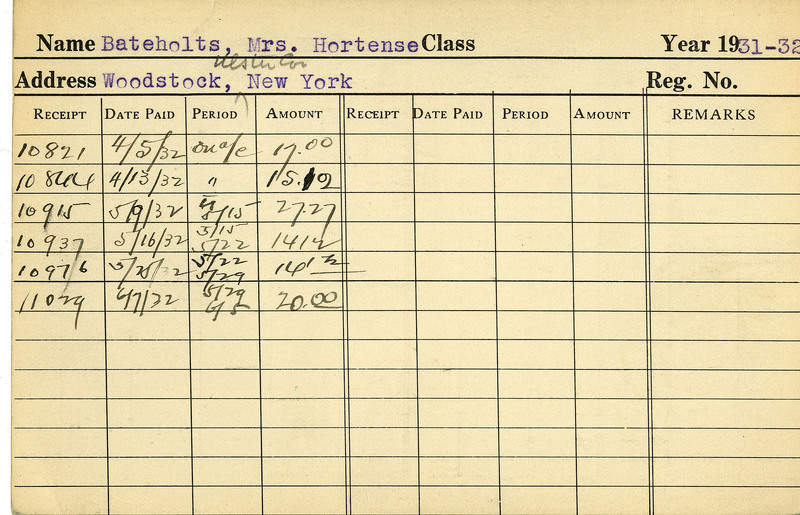 Name Bateholts, Mrs. Hortense Class Year 1931-32
Ulster Co.
Address Woodstock, New York Reg. No.
RECEIPT DATE PAID PERIOD AMOUNT RECEIPT DATE PAID PERIOD AMOUNT REMARKS
10821 4/5/32 on a/c 17.00
4/13/32 " 15.
10915 5/9/32 5/15 27.27
5/15
10937 5/16/32 5/22 1412
5/22
10976 5/25/32 5/29
5/29
11029 6/7/32 6/5 20.00